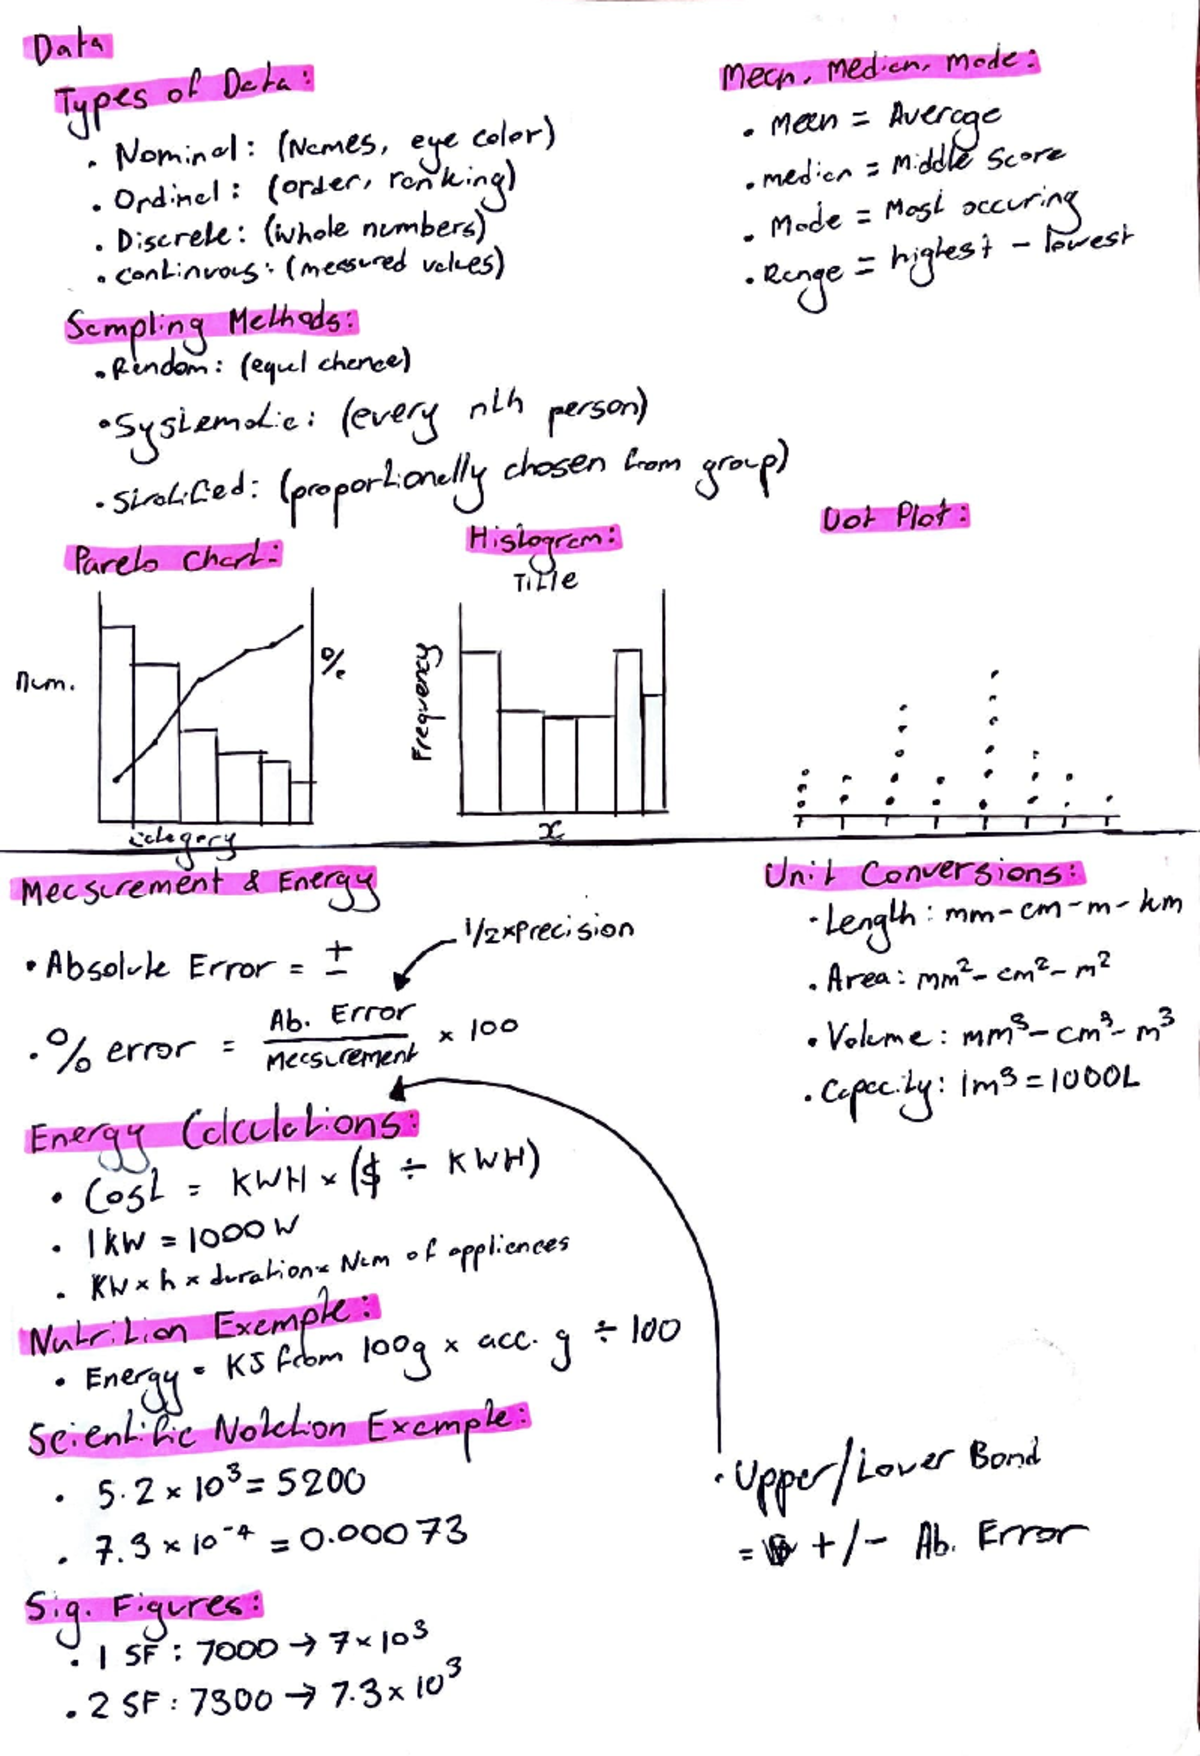 Data
Types of Data:
• Nominal: (Names, eye color)
• Ordinal: (order, ranking)
• Discrete: (whole numbers)
• continuous: (measured values)
Mean, Median, Mode:
• Mean = Average
• median = Middle Score
• Mode = Most occuring
• Range = highest - lowest
Sampling Methods:
• Random: (equl chance)
• Systematic: (every nth person)
• Stratified: (proportionally chosen from group)
Pareto Chart:
Num.
%
Category
Histogram:
Title
Frequency
x
Dot Plot:
Measurement & Energy
• Absolute Error = ±
1/2 x Precision
• % error = Ab. Error / Measurement × 100
Energy Calculations:
• Cost = KWH × ($ ÷ KWH)
• 1kW = 1000W
• KW × h × duration × Num of appliances
Nutrition Example:
• Energy = KJ from 100g × acc. g ÷ 100
Scientific Notation Example:
• 5.2 × 10³ = 5200
• 7.3 × 10⁻⁴ = 0.00073
Sig. Figures:
• 1 SF : 7000 → 7 × 10³
• 2 SF : 7300 → 7.3 × 10³
Unit Conversions:
• Length: mm - cm - m - km
• Area: mm² - cm² - m²
• Volume: mm³ - cm³ - m³
• Capacity: 1m³ = 1000L
• Upper/Lower Bond
= +/- Ab. Error